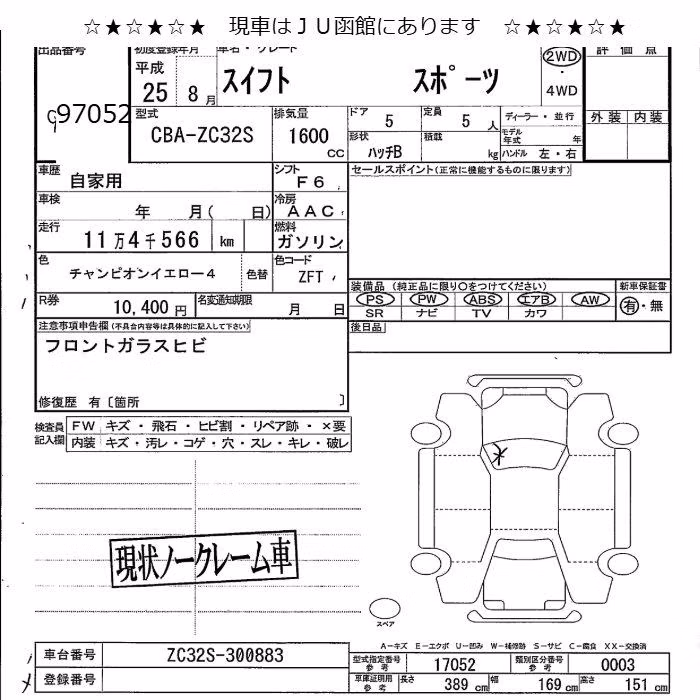 ☆★☆★☆★ 現車はＪＵ函館にあります ☆★☆★☆★
出品番号 初度登録年月 車名・グレード 評価点
97052 平成 25 8月 スイフト スポーツ 2WD・4WD
型式 CBA-ZC32S 排気量 1600 CC ドア 5 定員 5 人 ディーラー・並行 外装 内装
形状 ハッチB 積載 kg モデル年式 年 ハンドル 左・右
車歴 自家用 シフト F6 セールスポイント(正常に機能するものに限ります)
車検 年 月( 日) 冷房 AAC
走行 11万4千566 km 燃料 ガソリン
色 チャンピオンイエロー4 色替 色コード ZFT
装備品 (純正品に限り○をつけてください) 新車保証書
R券 10,400円 名変通知期限 月 日 PS PW ABS エアB AW 有・無
SR ナビ TV カワ
注意事項申告欄(不具合内容等は具体的に記入して下さい) 後日品
フロントガラスヒビ
修復歴 有〔箇所 〕
検査員記入欄 FW キズ・飛石・ヒビ割・リペア跡・×要
内装 キズ・汚レ・コゲ・穴・スレ・キレ・破レ
現状ノークレーム車
スペア
A－キズ E－エクボ U－凹み W－補修跡 S－サビ C－腐食 XX－交換済
車台番号 ZC32S-300883 型式指定番号 参考 17052 類別区分番号 参考 0003
登録番号 車庫証明用 参考 長さ 389 cm 幅 169 cm 高さ 151 cm